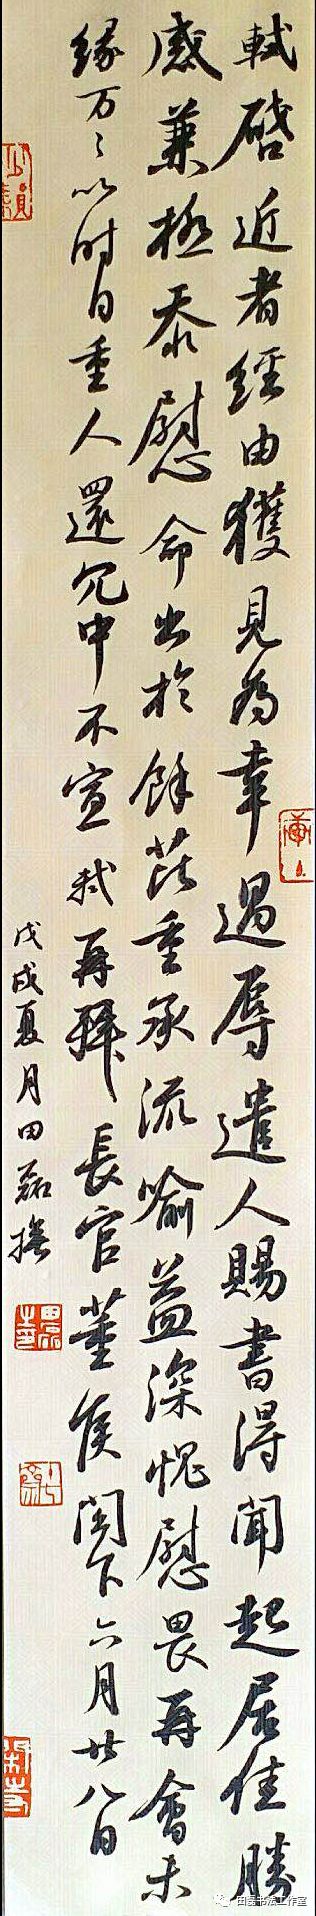 軾啓近者經由獲見為幸過辱遣人賜書得聞起居佳勝
感兼極忝慰命出於餘芘重承流喻益深愧慰畏再會未
緣万〻以时自重人還冗中不宣軾再拜長官董侯閣下六月廿八日
戊戌夏月田磊撫
田磊书法工作室